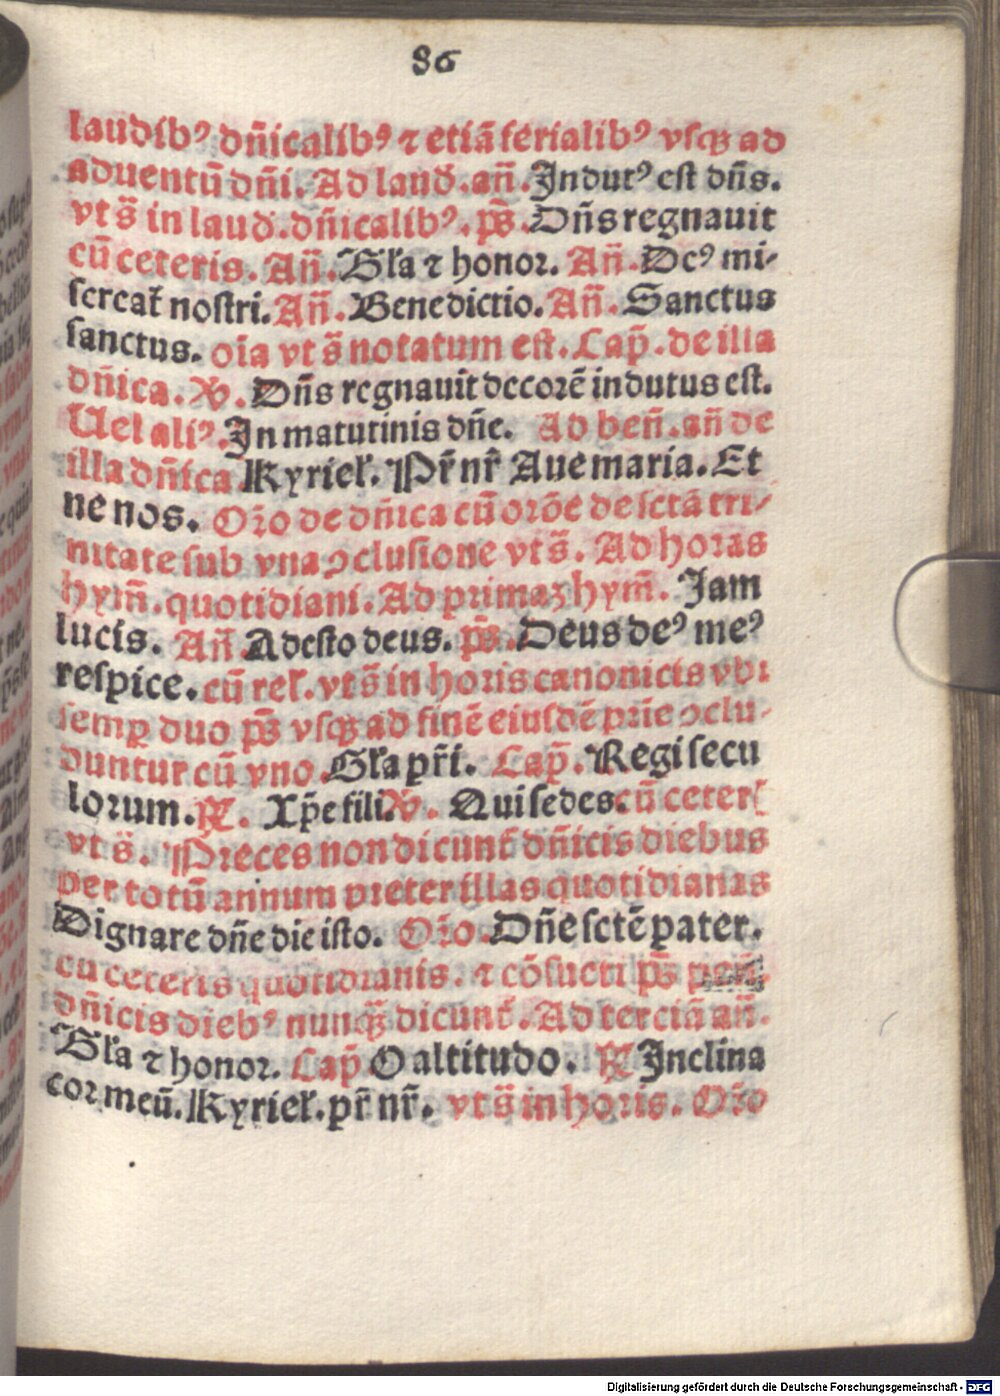 86
laudibꝰ dn̄icalibꝰ ⁊ etiā ferialibꝰ vſqꝫ ad
aduentū dn̄i. Ad laud̄. an̄. Indutꝰ eſt dn̄s.
vt s̄ in laud̄. dn̄icalibꝰ. ps̄. Dn̄s regnauit
cū ceteris. An̄. Gl̄a ⁊ honor. An̄. Deꝰ mi-
ſereat̄ noſtri. An̄. Benedictio. An̄. Sanctus
ſanctus. oīa vt s̄ notatum eſt. Cap̄. de illa
dn̄ica. V̄. Dn̄s regnauit decorē indutus eſt.
Uel aliꝰ. In matutinis dn̄e. Ad ben̄. an̄ de
illa dn̄ica Kyriel̄. Pr̄ nr̄ Aue maria. Et
ne nos. Or̄o de dn̄ica cū orōe de ſctā tri-
nitate ſub vna ꝯcluſione vt s̄. Ad horas
hym̄. quotidiani. Ad primaꝫ hym̄. Jam
lucis. An̄ Adeſto deus. ps̄. Deus deꝰ meꝰ
reſpice. cū rel̄. vt s̄ in horis canonicis vbi
ſemꝑ duo ps̄ vſqꝫ ad finē eiuſdē prīe ꝯclu-
duntur cū vno Gl̄a pr̄i. Cap̄. Regi ſecu
lorum. R̄. Xp̄e fili V̄. Qui ſedes. cū ceter̄
vt s̄. Preces non dicunt̄ dn̄icis diebus
per totū annum preter illas quotidianas
Dignare dn̄e die iſto. Or̄o. Dn̄e ſctē pater.
cū ceteris quotidianis. ⁊ cōſueti ps̄
dn̄icis diebꝰ nunqꝫ dicunt̄. Ad terciā an̄.
Gl̄a ⁊ honor. Cap̄ O altitudo. R̄ Inclina
cor meū. Kyriel̄. pr̄ nr̄. vt s̄ in horis. Or̄o
Digitalisierung gefördert durch die Deutsche Forschungsgemeinschaft - DFG